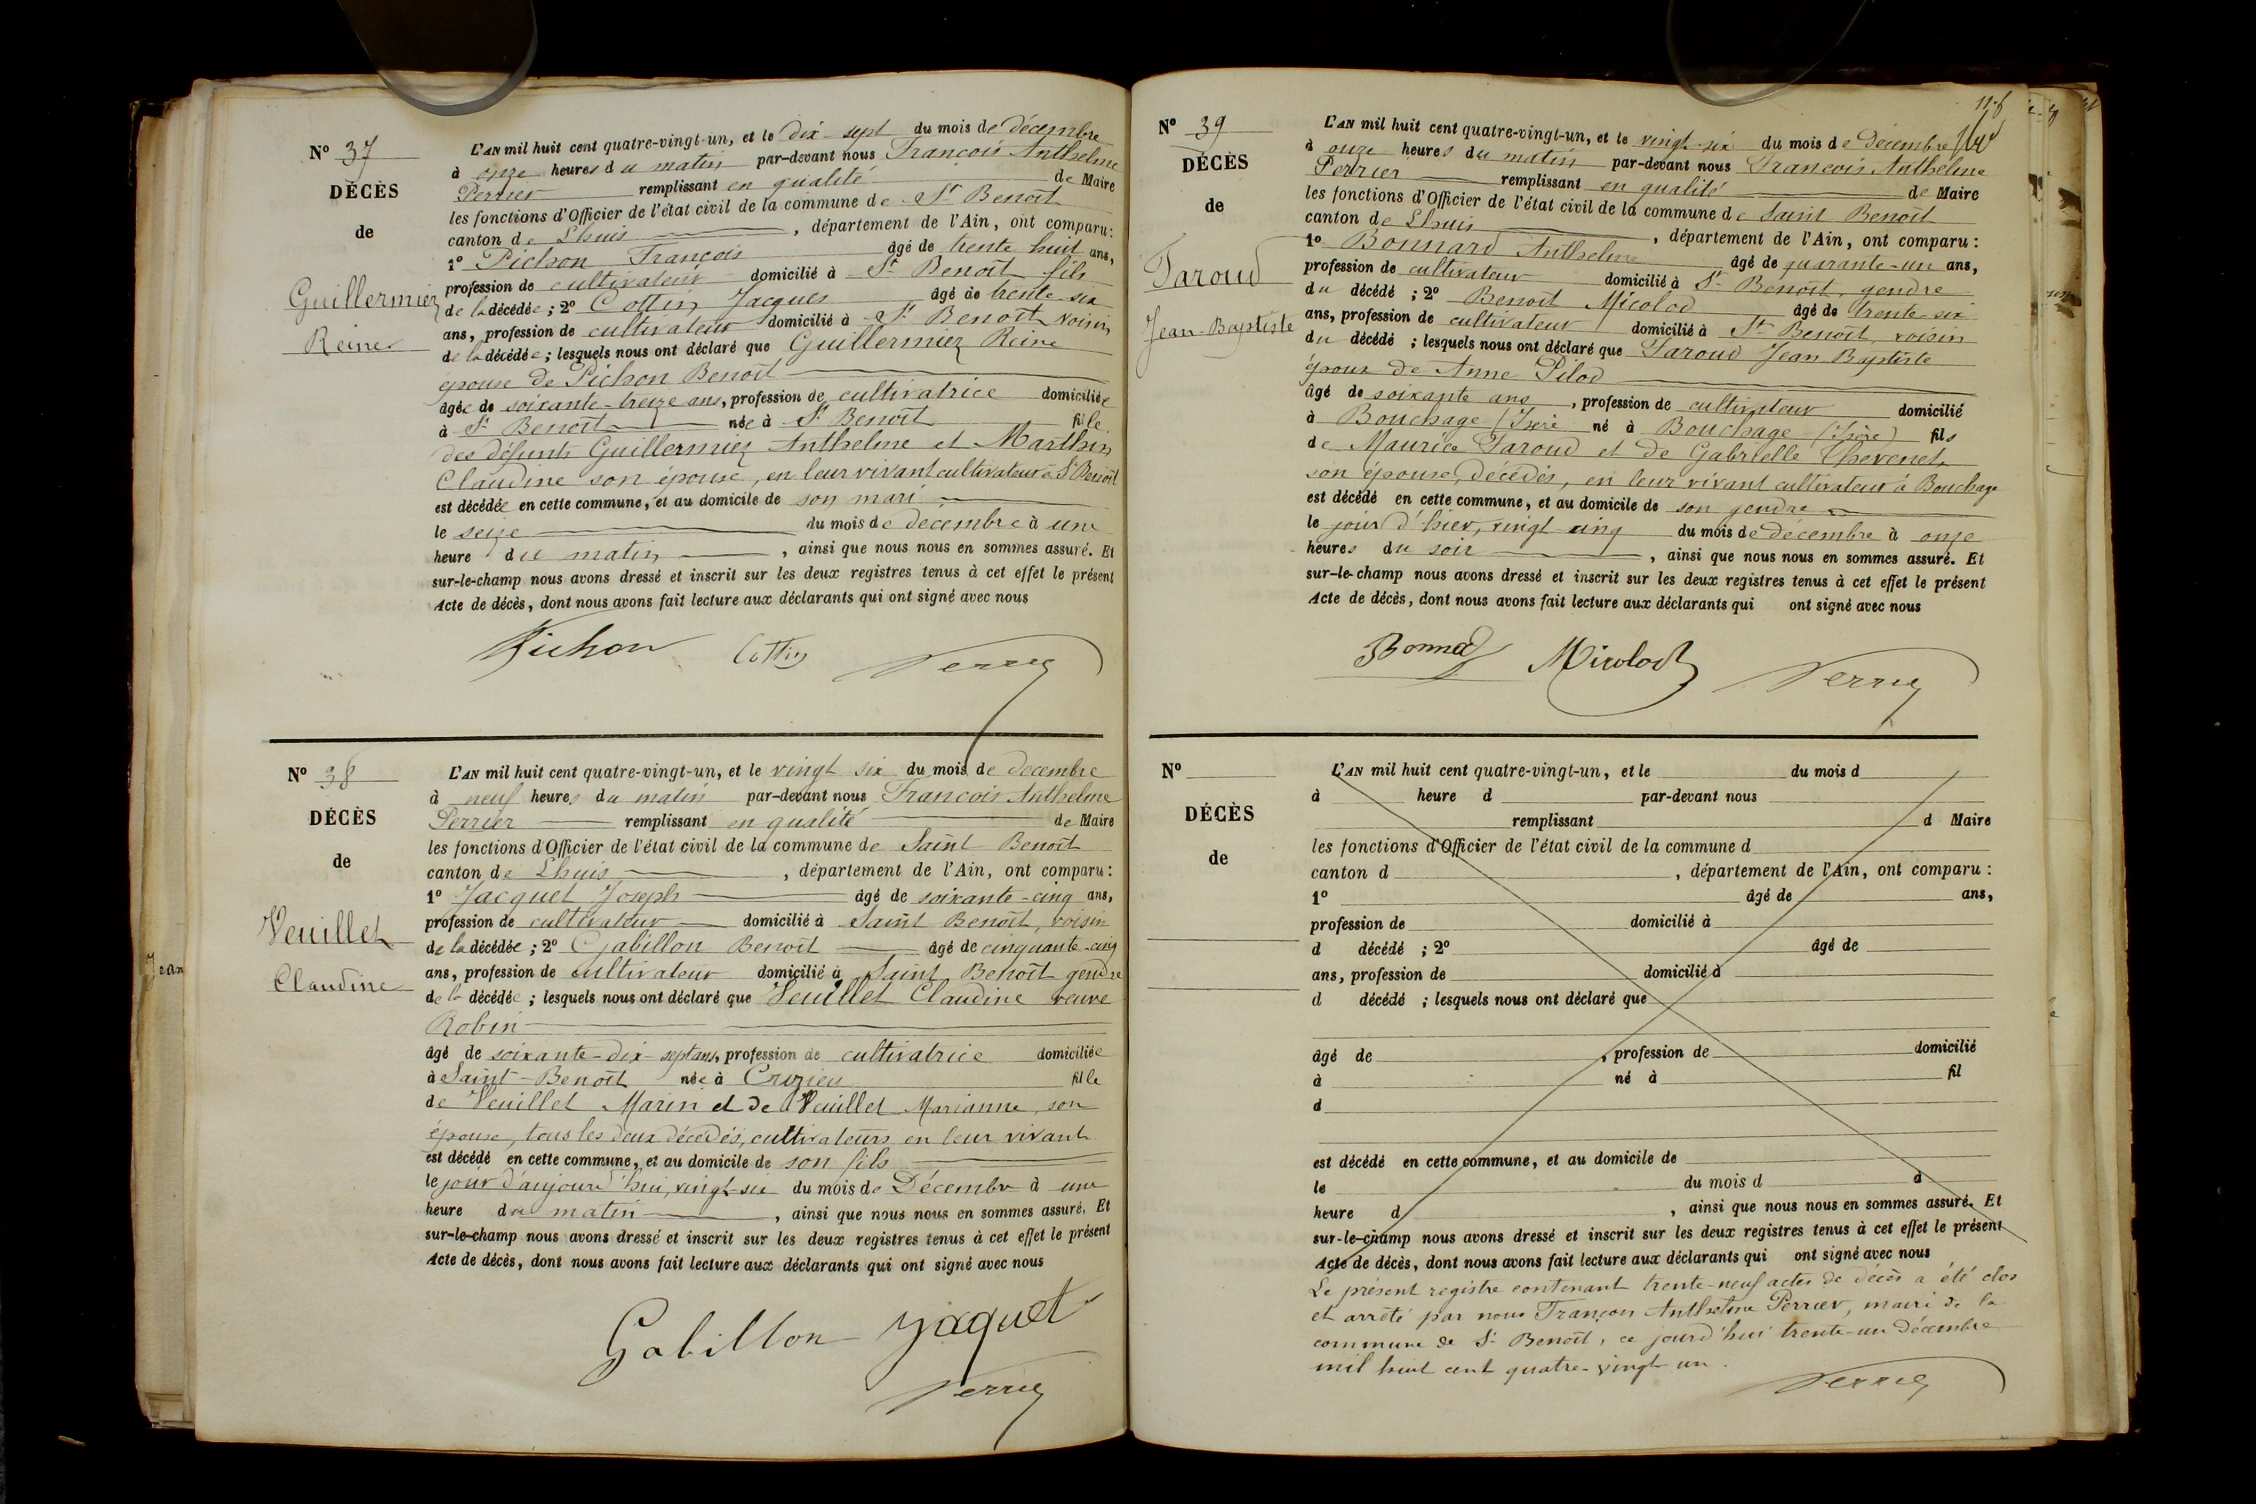 N° 37
DÉCÈS
de
Guillermier
Reine
L'AN mil huit cent quatre-vingt-un, et le dix-sept du mois de décembre
à onze heures du matin par-devant nous François Anthelme
Perrier remplissant en qualité de Maire
les fonctions d'Officier de l'état civil de la commune de St Benoît
canton de Lhuis, département de l'Ain, ont comparu:
1° Pichon François âgé de trente huit ans,
profession de cultivateur domicilié à St Benoît fils
de la décédée; 2° Cottin Jacques âgé de trente-six
ans, profession de cultivateur domicilié à St Benoît voisin
de la décédée; lesquels nous ont déclaré que Guillermier Reine
épouse de Pichon Benoît
âgée de soixante-treize ans, profession de cultivatrice domiciliée
à St Benoît née à St Benoît fille
des défunts Guillermier Anthelme et Marthin
Claudine son épouse, en leur vivant cultivateur à St Benoît
est décédée en cette commune, et au domicile de son mari
le seize du mois de décembre à une
heure du matin, ainsi que nous nous en sommes assuré. Et
sur-le-champ nous avons dressé et inscrit sur les deux registres tenus à cet effet le présent
Acte de décès, dont nous avons fait lecture aux déclarants qui ont signé avec nous
Pichon Cottin Perrier
N° 38
DÉCÈS
de
Veuillet
Claudine
L'AN mil huit cent quatre-vingt-un, et le vingt six du mois de décembre
à neuf heures du matin par-devant nous François Anthelme
Perrier remplissant en qualité de Maire
les fonctions d'Officier de l'état civil de la commune de Saint Benoît
canton de Lhuis, département de l'Ain, ont comparu:
1° Jacquet Joseph âgé de soixante-cinq ans,
profession de cultivateur domicilié à Saint Benoît, voisin
de la décédée; 2° Gabillon Benoît âgé de cinquante-cinq
ans, profession de cultivateur domicilié à Saint Benoît gendre
de la décédée; lesquels nous ont déclaré que Veuillet Claudine veuve
Robin
âgé de soixante-dix-sept ans, profession de cultivatrice domiciliée
à Saint-Benoît née à fille
de Veuillet Marin et de Veuillet Marianne, son
épouse, tous les deux décédés, cultivateurs en leur vivant
est décédé en cette commune, et au domicile de son fils
le jour d'aujourd'hui, vingt-six du mois de Décembre à une
heure du matin, ainsi que nous nous en sommes assuré. Et
sur-le-champ nous avons dressé et inscrit sur les deux registres tenus à cet effet le présent
Acte de décès, dont nous avons fait lecture aux déclarants qui ont signé avec nous
Gabillon Jaquet
Perrier
N° 39
DÉCÈS
de
Taroud
Jean-Baptiste
L'AN mil huit cent quatre-vingt-un, et le vingt-six du mois de Décembre
à onze heures du matin par-devant nous François Anthelme
Perrier remplissant en qualité de Maire
les fonctions d'Officier de l'état civil de la commune de Saint Benoît
canton de Lhuis, département de l'Ain, ont comparu:
1° Bonnard Anthelme âgé de quarante-un ans,
profession de cultivateur domicilié à St Benoît, gendre
du décédé; 2° Benoît Micolod âgé de trente six
ans, profession de cultivateur domicilié à St Benoît, voisin
du décédé; lesquels nous ont déclaré que Taroud Jean Baptiste
époux de Anne Pilod
âgé de soixante ans, profession de cultivateur domicilié
à Bouchage (Isère né à Bouchage (Isère) fils
de Maurice Taroud et de Gabrielle Thevenet
son épouse, décédés, en leur vivant cultivateur à Bouchage
est décédé en cette commune, et au domicile de son gendre
le jour d'hier, vingt-cinq du mois de décembre à onze
heures du soir, ainsi que nous nous en sommes assuré. Et
sur-le-champ nous avons dressé et inscrit sur les deux registres tenus à cet effet le présent
Acte de décès, dont nous avons fait lecture aux déclarants qui ont signé avec nous
Bonnard Micolod Perrier
N°
DÉCÈS
de
L'AN mil huit cent quatre-vingt-un, et le du mois d
à heure d par-devant nous
remplissant d Maire
les fonctions d'Officier de l'état civil de la commune d
canton d , département de l'Ain, ont comparu:
1° âgé de ans,
profession de domicilié à
d décédé; 2° âgé de
ans, profession de domicilié à
d décédé; lesquels nous ont déclaré que
âgé de , profession de domicilié
à né à fil
d
est décédé en cette commune, et au domicile de
le du mois d d
heure d , ainsi que nous nous en sommes assuré. Et
sur-le-champ nous avons dressé et inscrit sur les deux registres tenus à cet effet le présent
Acte de décès, dont nous avons fait lecture aux déclarants qui ont signé avec nous
Le présent registre contenant trente-neuf actes de décès a été clos
et arrêté par nous François Anthelme Perrier, maire de la
commune de St Benoît, ce jourd'hui trente-un Décembre
mil huit cent quatre-vingt un.
Perrier